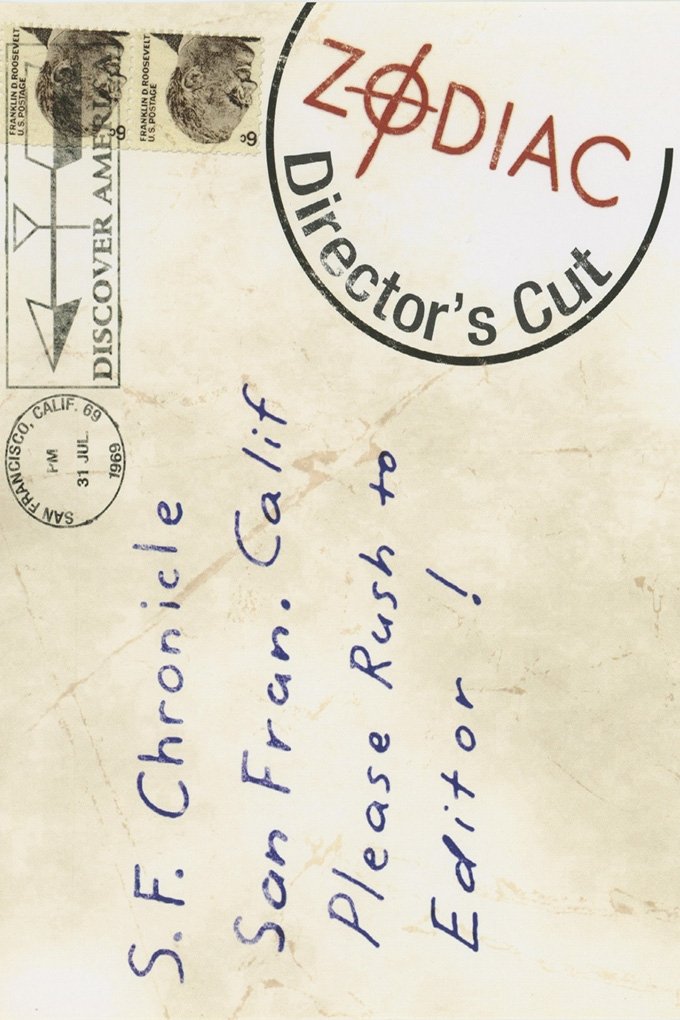 FRANKLIN D. ROOSEVELT
U.S. POSTAGE
6¢
FRANKLIN D. ROOSEVELT
U.S. POSTAGE
6¢
DISCOVER AMERICA
SAN FRANCISCO, CALIF. 69
PM
31 JUL.
1969
ZODIAC
Director's Cut
S.F. Chronicle
San Fran. Calif
Please Rush to
Editor!